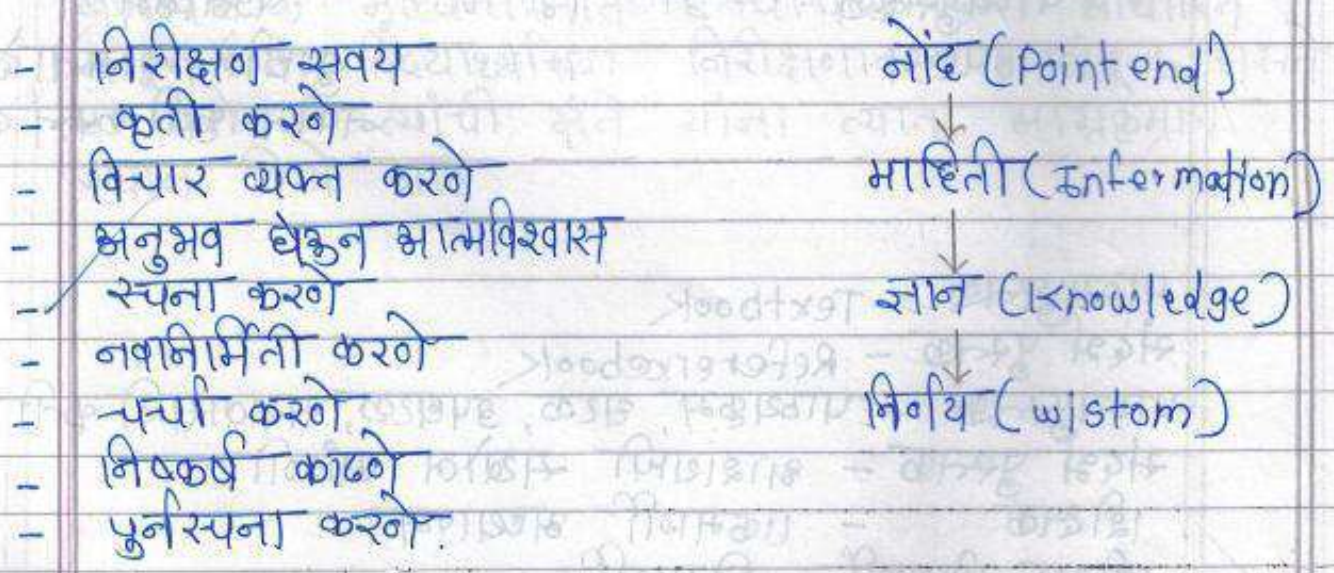 - निरीक्षण सवय
- कृती करणे
- विचार व्यक्त करणे
- अनुभव घेऊन आत्मविश्वास
- रचना करणे
- नवनिर्मिती करणे
- चर्चा करणे
- निष्कर्ष काढणे
- पुर्नरचना करणे.
नोंद (Point end)
माहिती (Infermation)
ज्ञान (Knowledge)
निर्णय (wistom)